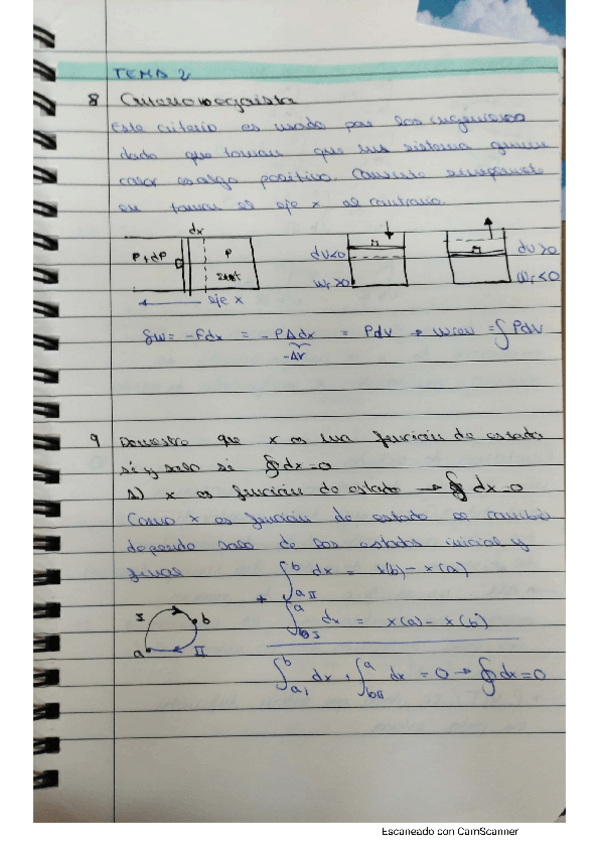 TEMA 2
8 Criterio egoista
Este criterio es usado por los ingenieros
dado que toman que sus sistema
calor es algo positivo.
en tomar el eje x al contrario.
dx
P+dP P dV<0 M M dV>0
W,>0 W,<0
eje x
δW = -Fdx = -PAdx = PdV → Wrev = ∫PdV
-dV
9 Demuestra que x es una función de estado
si y solo si ∮dx=0
1) x es función de estado → ∮dx=0
Como x es función de estado el cambio
depende solo de los estados inicial y
final ∫ b a II dx = x(b) - x(a)
I b + ∫ a b I dx = x(a) - x(b)
a II
∫ b a I dx + ∫ a b II dx = 0 → ∮dx=0
Escaneado con CamScanner